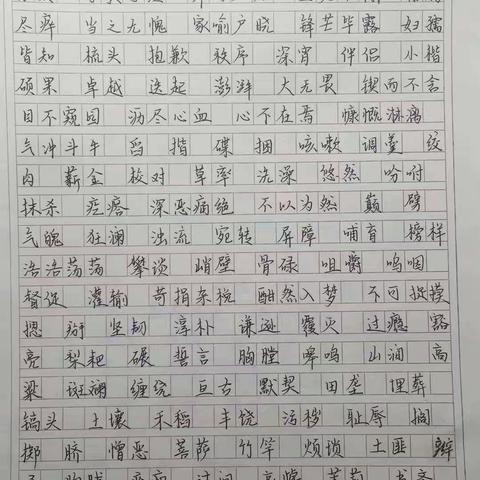 尽瘁 当之无愧 家喻户晓 锋芒毕露 妇孺
皆知 梳头 抱歉 秩序 深宵 伴侣 小楷
硕果 卓越 迭起 澎湃 大无畏 锲而不舍
目不窥园 沥尽心血 心不在焉 慷慨淋漓
气冲斗牛 舀 揩 碟 捆 咳嗽 调羹 绞
肉 薪金 校对 草率 洗澡 悠然 吩咐
抹杀 疙瘩 深恶痛绝 不以为然 巅 劈
气魄 狂澜 浊流 宛转 屏障 哺育 榜样
浩浩荡荡 攀谈 峭壁 骨碌 咀嚼 呜咽
督促 灌输 苛捐杂税 酣然入梦 不可捉摸
揾 坚韧 淳朴 谦逊 覆灭 过瘾 豁
亮 梨耙 碾 誓言 胸膛 嗥鸣 山涧 高
粱 斑斓 缠绕 亘古 默契 田垄 埋葬
镐头 土壤 禾稻 丰饶 污秽 耻辱 搁
掷 脐 憎恶 菩萨 竹竿 烦琐 土匪